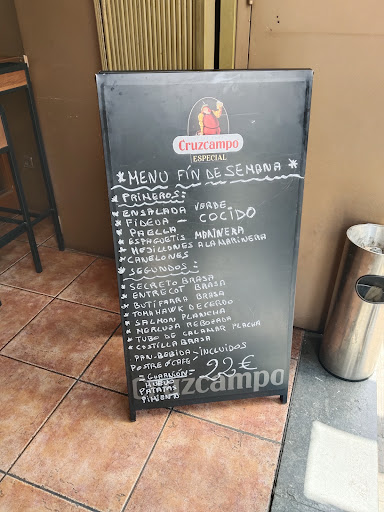 Cruzcampo
ESPECIAL
* MENU FIN DE SEMANA *
* PRIMEROS:
* ENSALADA VERDE
* FIDEUA - COCIDO
* PAELLA
* ESPAGUETIS MARINERA
* MEJILLONES A LA MARINERA
* CANELONES
* SEGUNDOS:
* SECRETO BRASA
* ENTRECOT BRASA
* BUTIFARRA BRASA
* TOMAHAWK DE CERDO
* SALMON PLANCHA
* MERLUZA REBOZADA
* TUBO DE CALAMAR PLACHA
* COSTILLA BRASA
PAN-BEBIDA-INCLUIDOS
POSTRE O CAFE 22€
- GUARNICION
Cruzcampo
PATATAS
PIMIENTO